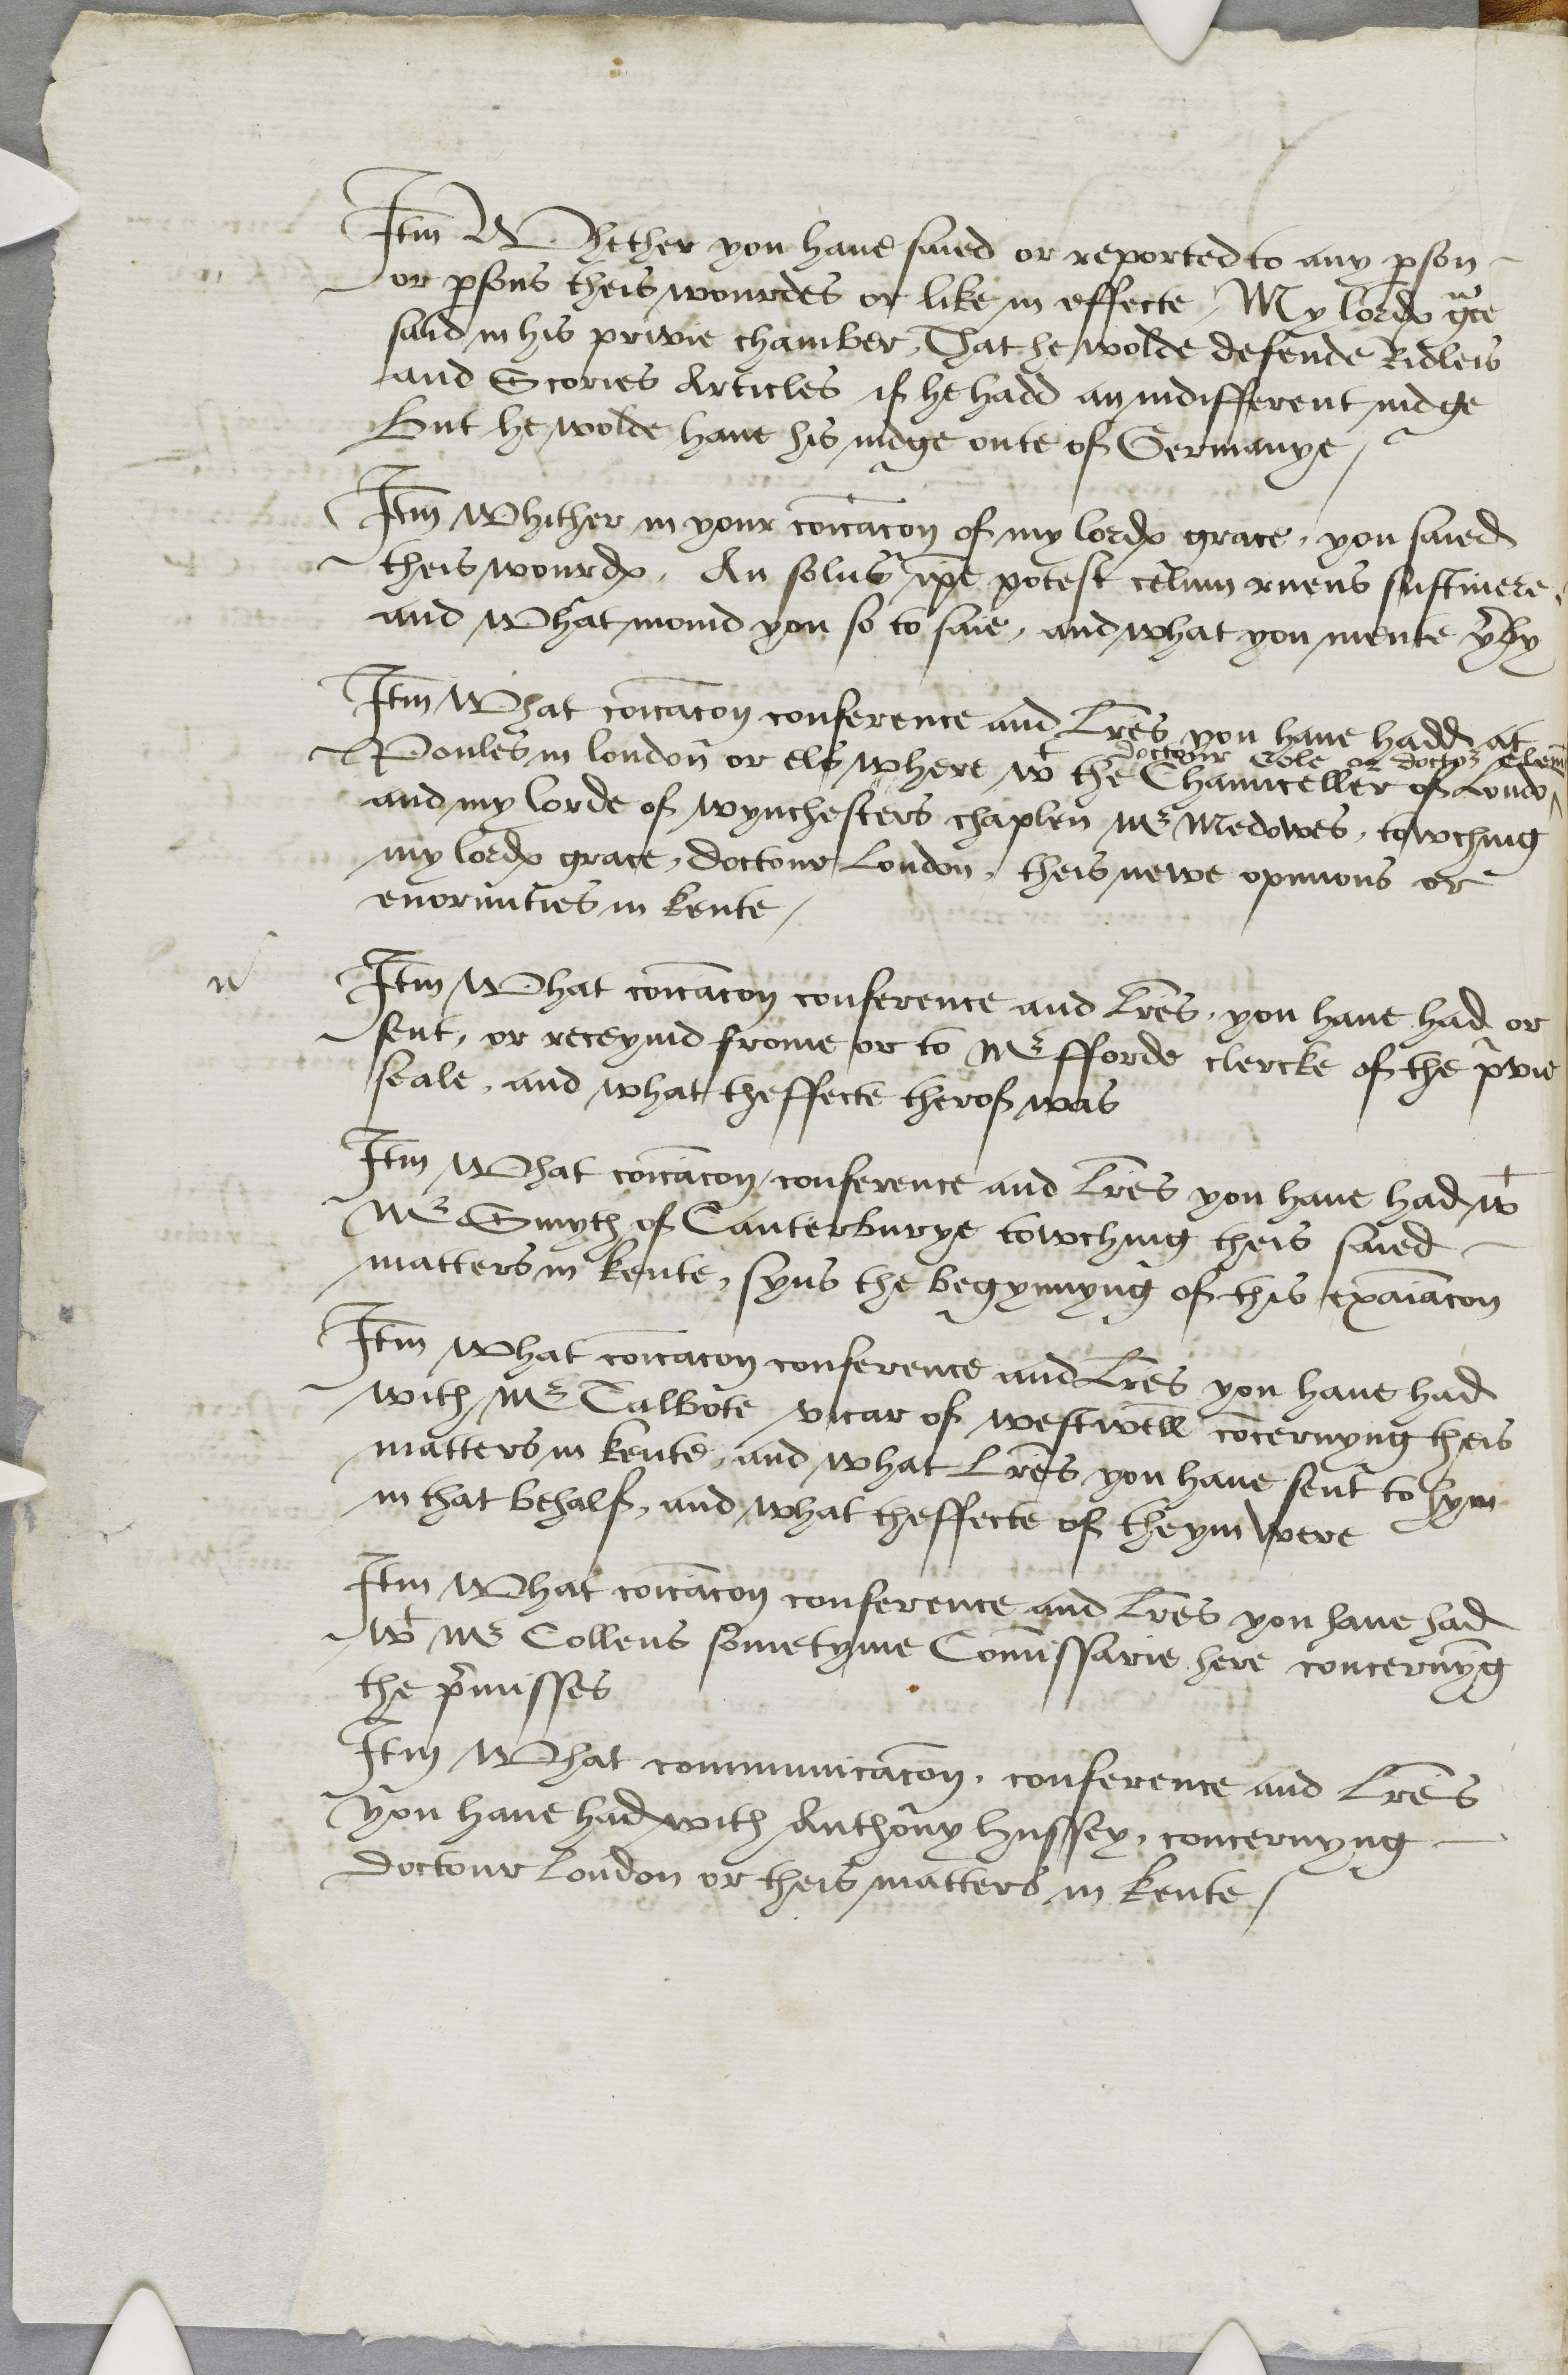 Itm Whether you haue saied or reported to any pson
or psons theis wourdes or like in effecte / My lordes gce
said in his privie chamber, That he wolde defende Ridleis
and Scories Articles if he hadd an indifferent iudge
But he wolde haue his iudge oute of Germanye /
Itm Whither in your coicacon of my lordes grace, you saied
theis wourdes, An solus ipe potest celum ruens sustinere,
and What movid you so to saie, and what you mente yrby
Itm What coicacon conference and lres you haue hadd at
doctour Cole or doctor
Poules in london or els where wt the Chaunceller of Londo
and my lorde of wynchesters chaplen Mr Medowes, towching
my lordes grace, doctour London, theis newe opinions or
enormities in kente /
Itm What coicacon conference and lres, you haue had or
sent, or receyvid frome or to Mr fforde clercke of the pvie
seale, and what theffecte therof was
Itm What coicacon, conference and lres you haue had wt
Mr Smyth of Canterburye towching theis saied
matters in kente, syns the begynnyng of this exaiacon
Itm What coicacon conference and lres you haue had
with Mr Talbote vicar of westwell cocernyng theis
matters in kente, and what lres you haue sent to hym
in that behalf, and what theffecte of theym were
Itm What coicacon conference and lres you haue had
wt Mr Collens sometyme Comissarie here concernyng
the pmisses
Itm What communicacon, conference and lres
you haue had with Anthony Hussey, concernyng
doctour London or theis matters in kente /